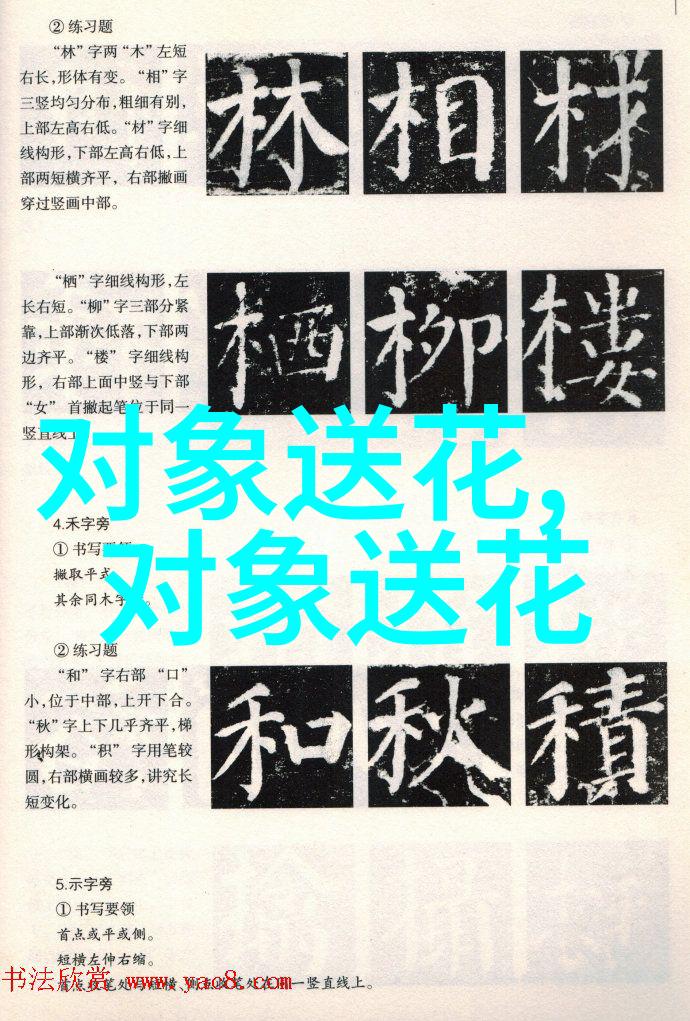 ② 练习题
“林”字两“木”左短
右长，形体有变。“相”字
三竖均匀分布，粗细有别，
上部左高右低。“材”字细
线构形，下部左高右低，上
部两短横齐平，右部撇画
穿过竖画中部。
林 相 材
“栖”字细线构形，左
长右短。“柳”字三部分紧
靠，上部渐次低落，下部两
边齐平。“楼”字细线构
形，右部上面中竖与下部
“女”首撇起笔位于同一
竖直线上
栖 柳 楼
对象送花，
对象送花
4.禾字旁
① 书写要领
撇取平式
其余同木字
② 练习题
“和”字右部“口”
小，位于中部，上开下合。
“秋”字上下几乎齐平，梯
形构架。“积”字用笔较
圆，右部横画较多，讲究长
短变化。
和 秋 積
5.示字旁
① 书写要领
首点或平或侧。
短横左伸右缩。
首点收笔处与短横、一竖直线上。
书法欣赏 www.yac8.com